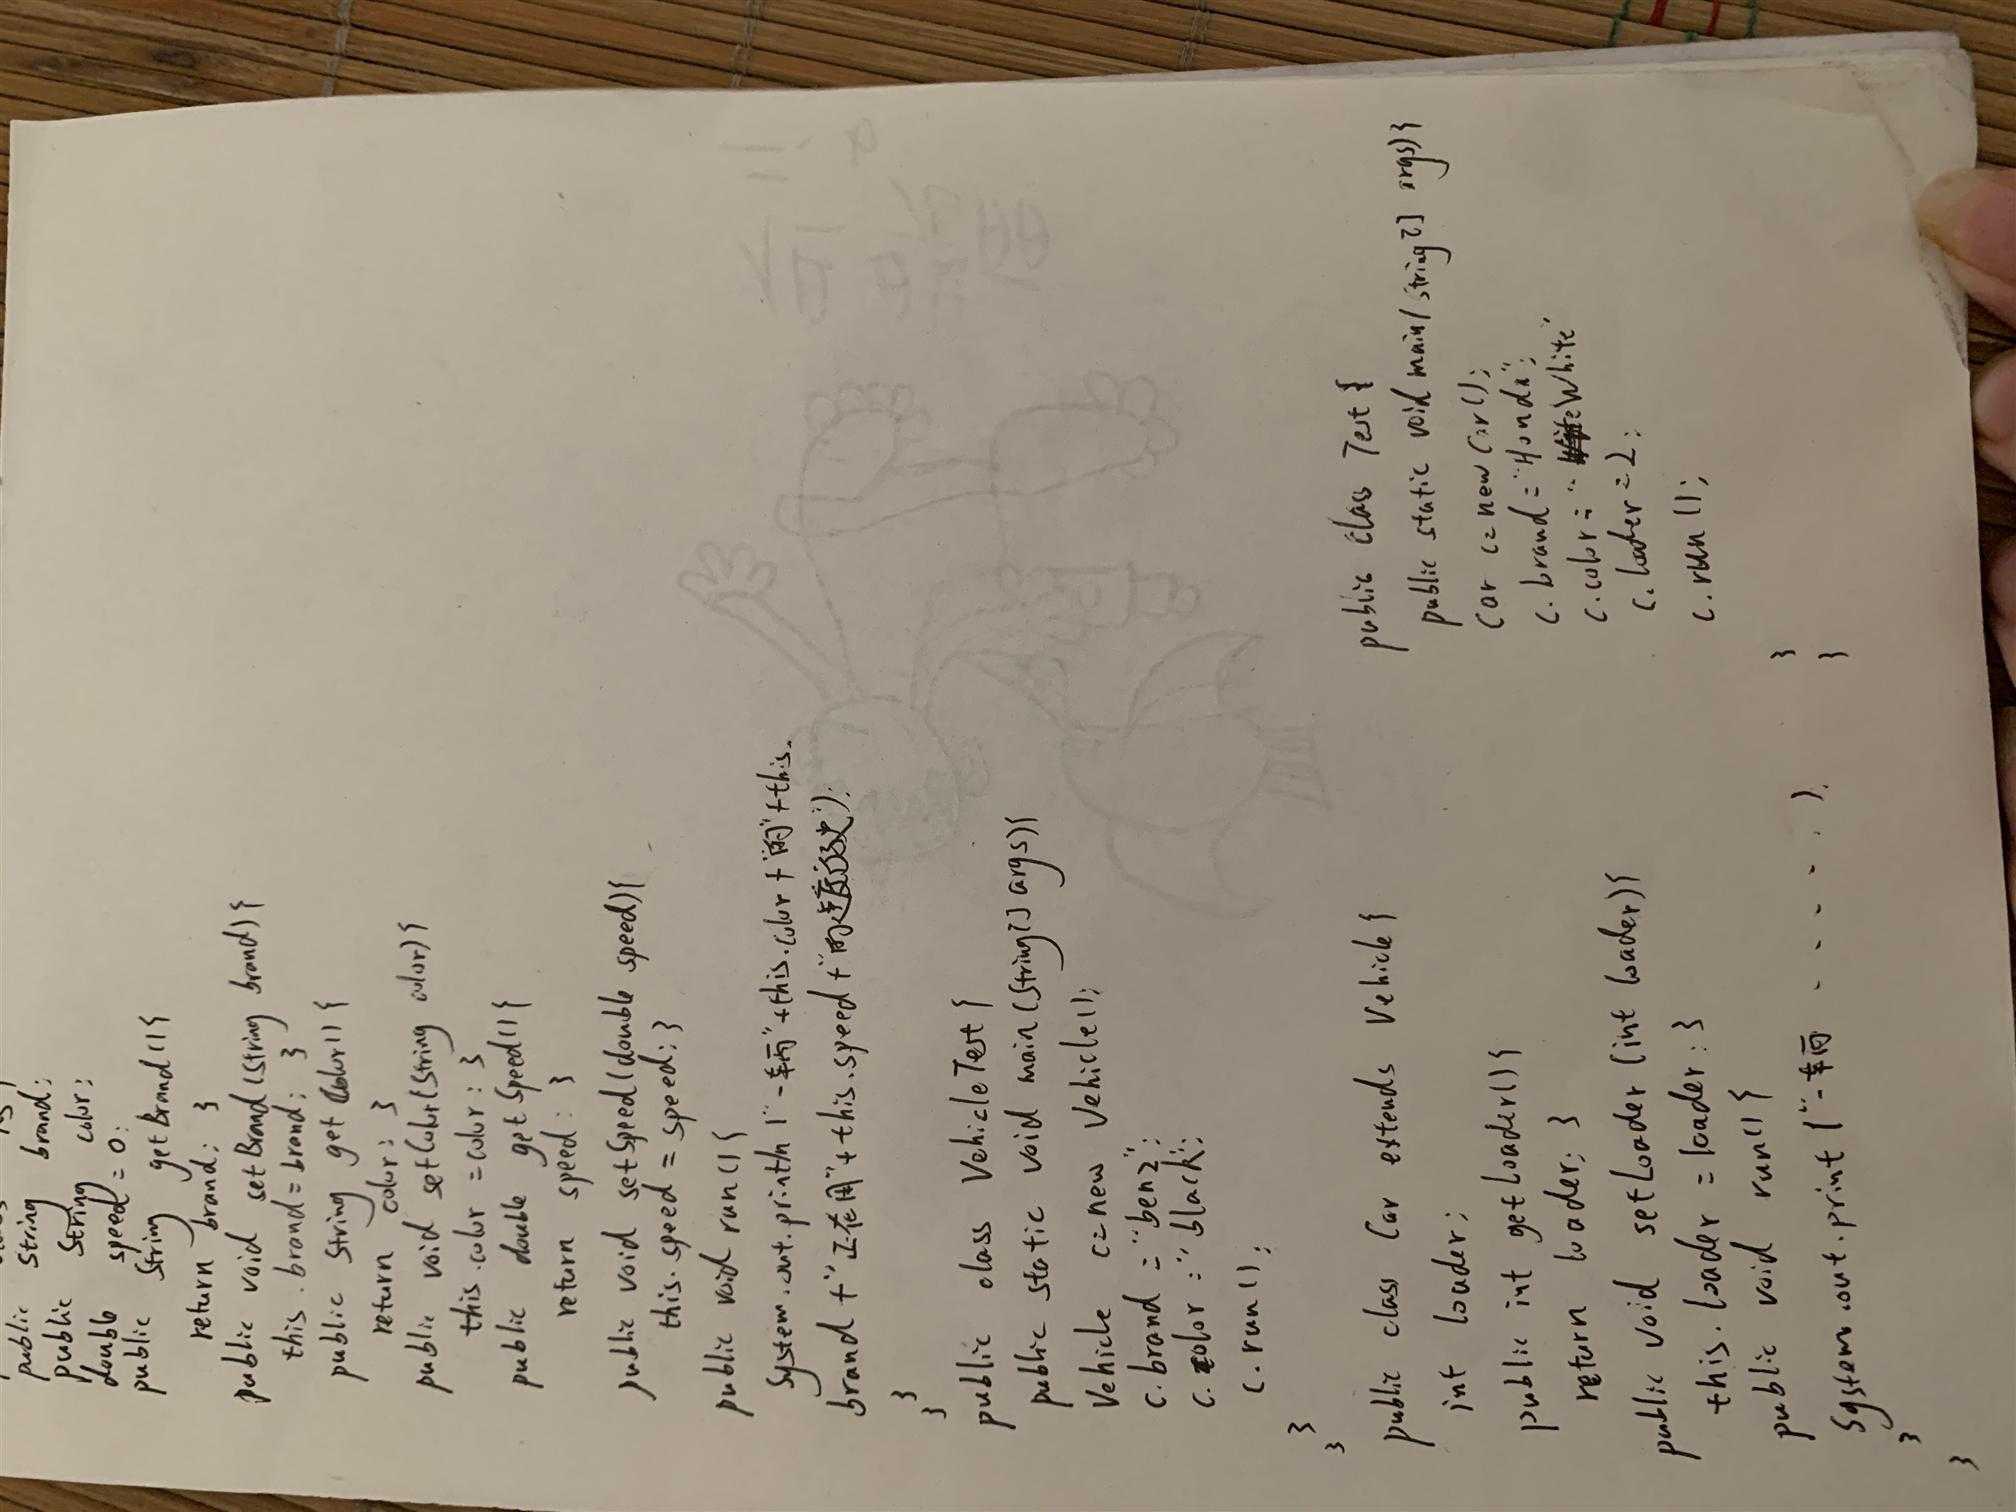 public String brand;
public String color;
double speed = 0;
public String getBrand(){
return brand; }
public void setBrand(String brand){
this.brand = brand; }
public String getColor(){
return color; }
public void setColor(String color){
this.color = color; }
public double getSpeed(){
return speed; }
public void setSpeed(double speed){
this.speed = speed; }
public void run(){
System.out.println("一辆"+this.color+"的"+this.
brand+"正在用"+this.speed+"的速度行驶");
}
}
public class VehicleTest{
public static void main(String[] args){
Vehicle c=new Vehicle();
c.brand="benz";
c.color="black";
c.run();
}
}
public class Car extends Vehicle{
int loader;
public int getLoader(){
return loader; }
public void setLoader(int loader){
this.loader=loader; }
public void run(){
System.out.print("一辆 . . . . . );
}
}
public class Test{
public static void main(String[] args){
Car c=new Car();
c.brand="Honda";
c.color="White"
c.loader=2;
c.run();
}
}